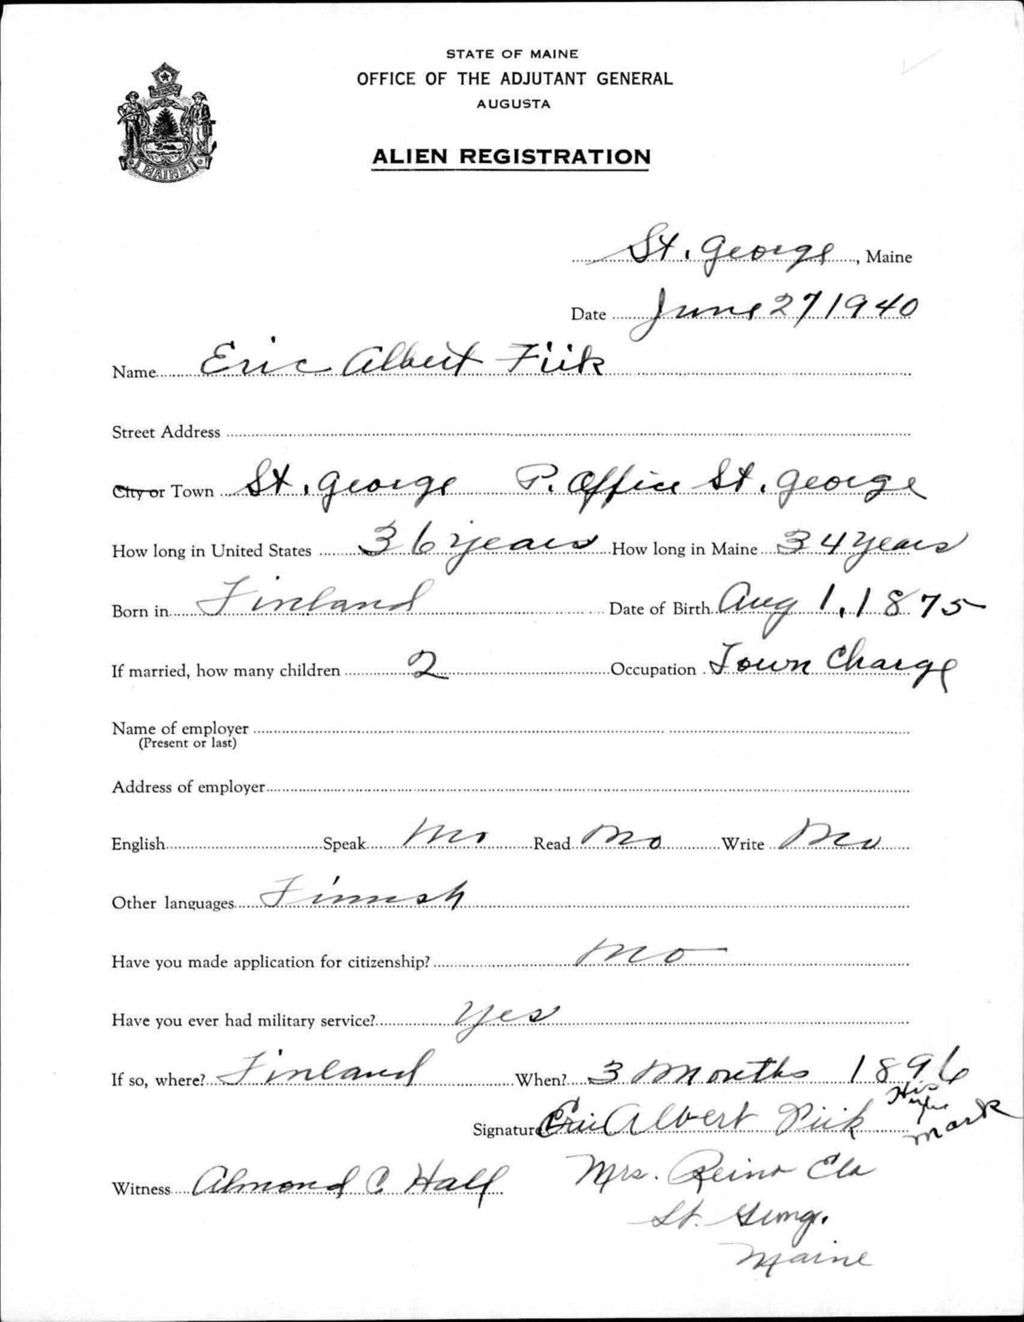 STATE OF MAINE
OFFICE OF THE ADJUTANT GENERAL
AUGUSTA
ALIEN REGISTRATION
MAINE
St. George, Maine
Date June 27 1940
Name Eric Albert Fiik
Street Address
City or Town St. George P. Office St. George
How long in United States 36 years How long in Maine 34 years
Born in Finland Date of Birth Aug 1, 1875
If married, how many children 2 Occupation Town Charge
Name of employer
(Present or last)
Address of employer
English Speak no Read no Write no
Other languages Finnish
Have you made application for citizenship? no
Have you ever had military service? Yes
If so, where? Finland When? 3 months 1896
Signature Eric Albert Fiik His mark
Witness Almond C. Hall Mrs. Reino
St. George,
Maine